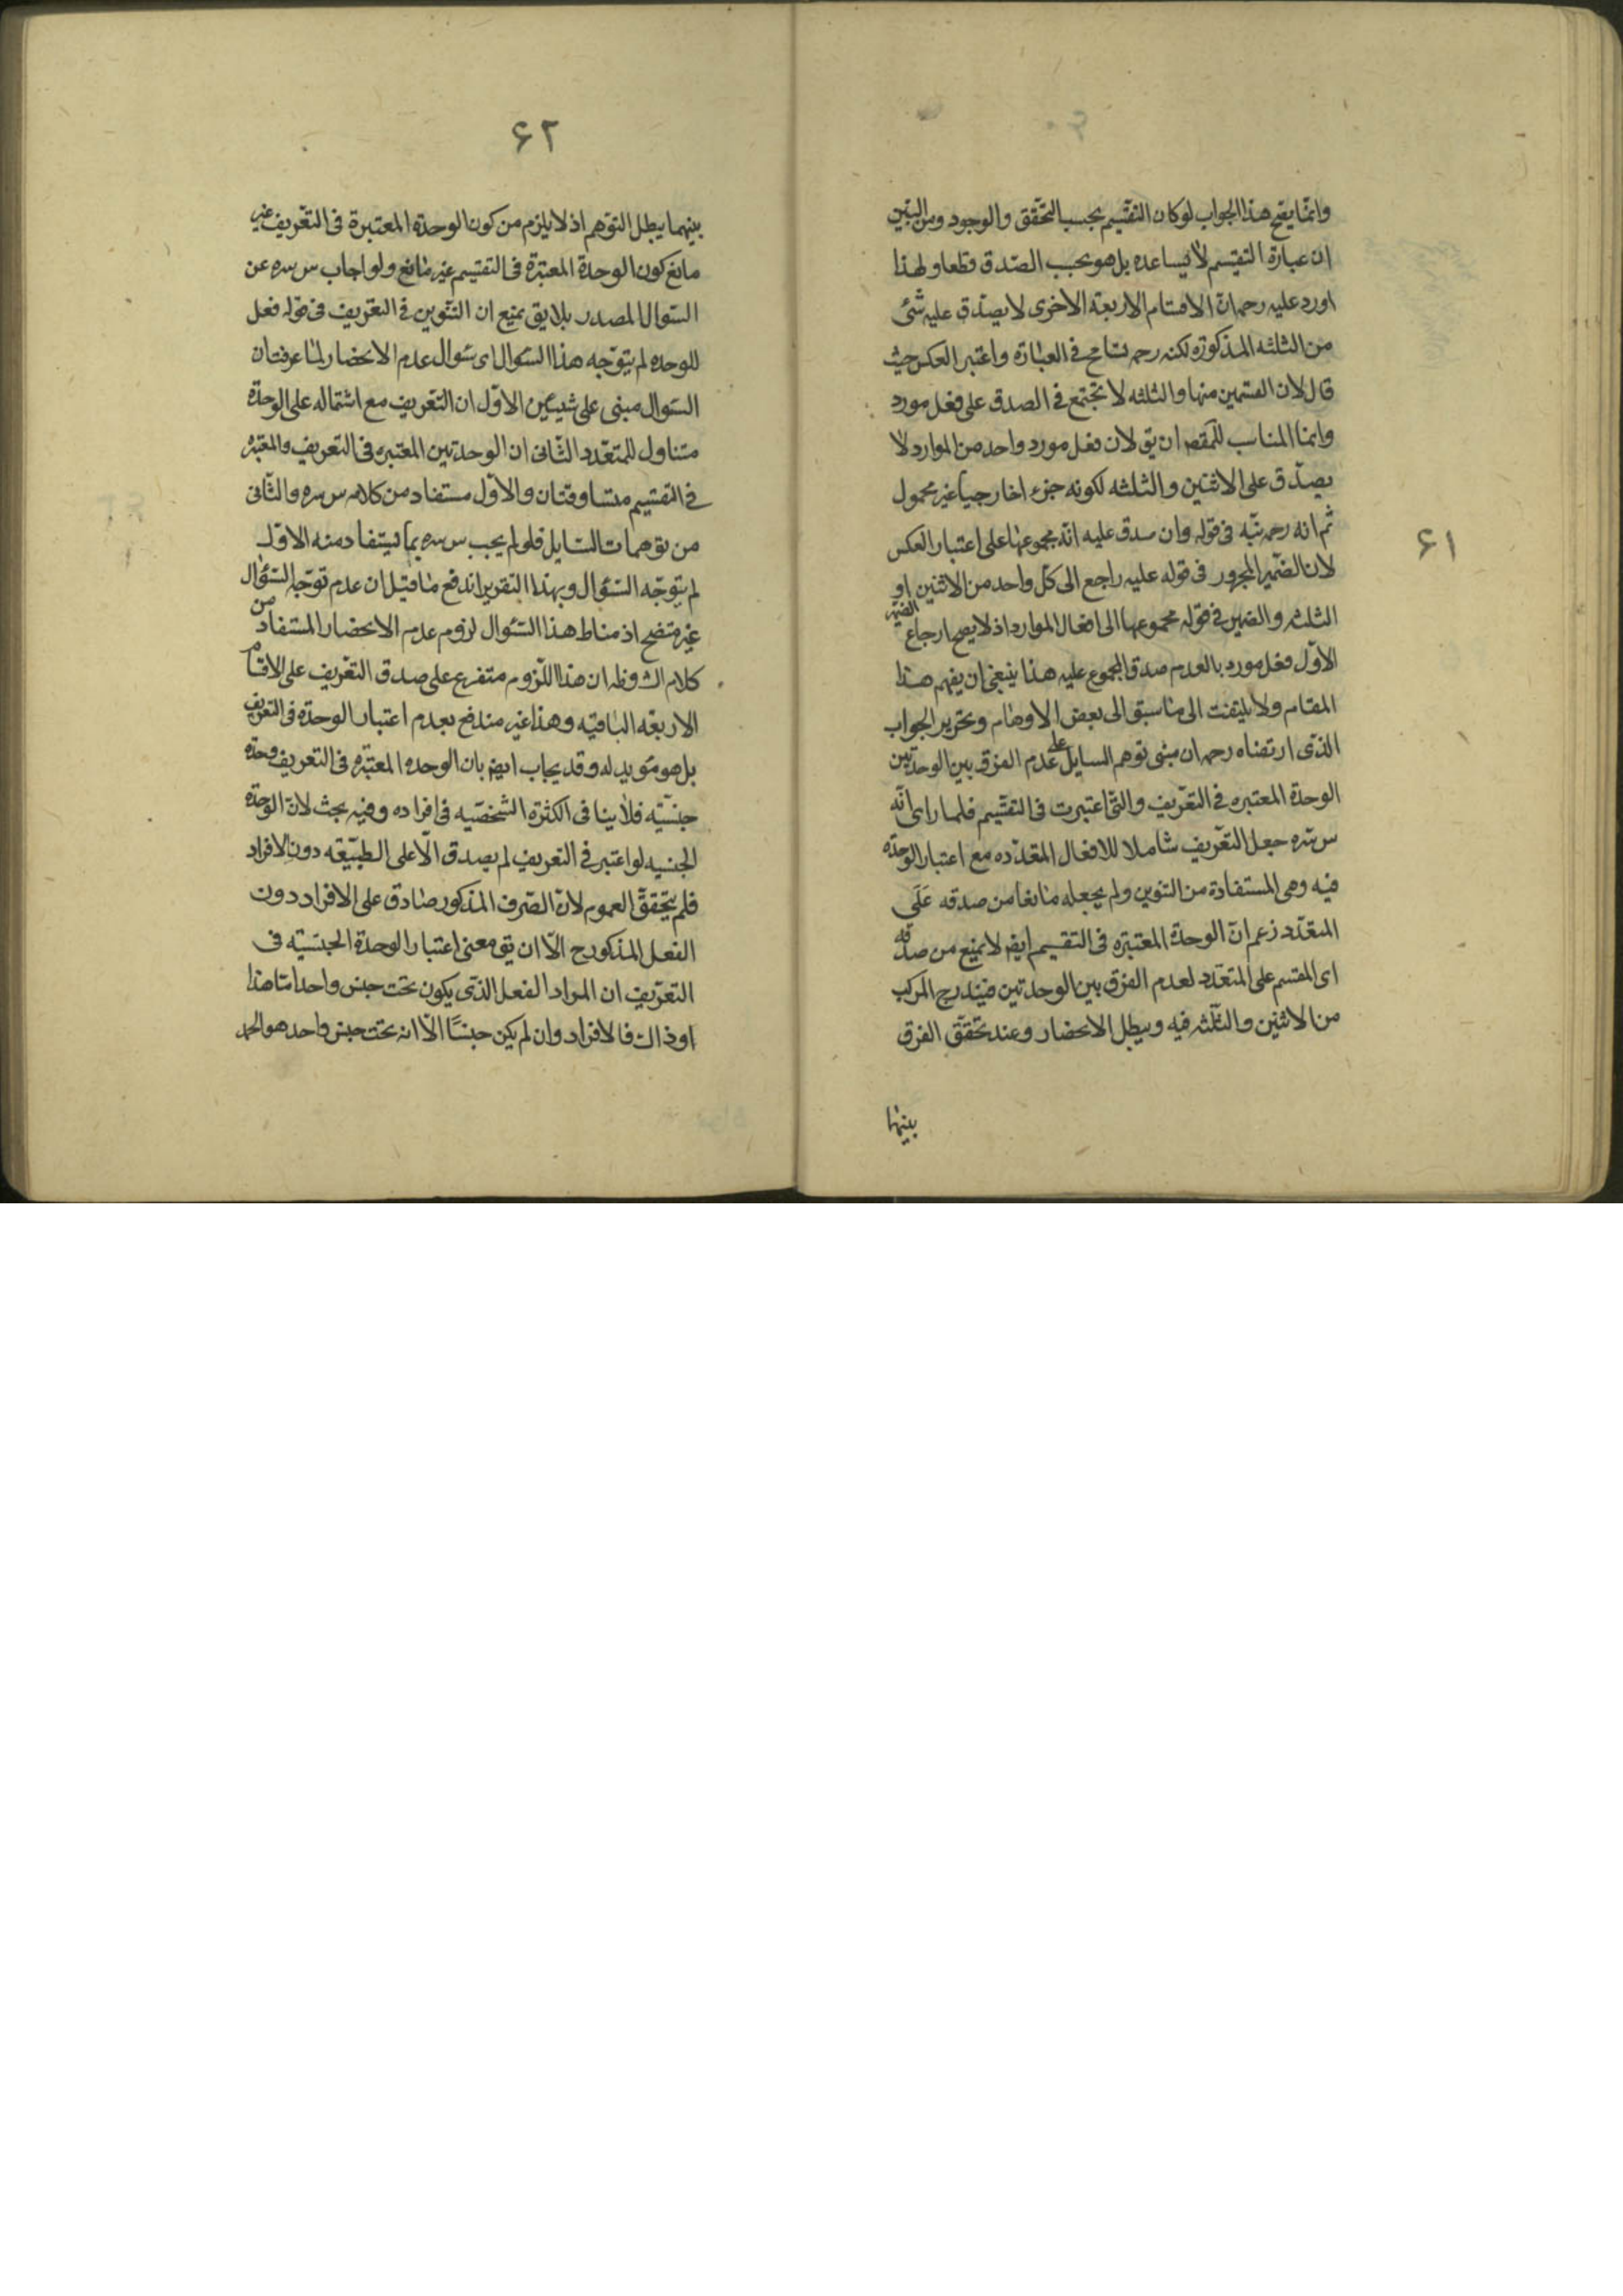 ۶۱
وانما يقع هذا الجواب لو كان التقسيم بحسب التحقق والوجود ومن البين
ان عبارة التقسيم لا يساعده بل هو بحسب الصدق قطعا ولهذا
اورد عليه رحمه ان الاقسام الاربعة الاخرى لا يصدق عليه شئ
من الثلثه المذكورة لكنه رحمه تسامح في العبارة واعتبر العكس حيث
قال لان القسمين منها والثلثه لا تجتمع في الصدق على فعل مورد
وانما المناسب للمقصد ان يق لان فعل مورد واحد من الموارد لا
يصدق على الاثنين والثلثه لكونه جزء اخارجيا غير محمول
ثم انه رحمه نبه في قوله وان صدق عليه انه مجموعها على اعتبار العكس
لان الضمير المجرور في قوله عليه راجع الى كل واحد من الاثنين او
الثلثه والضمير في قوله مجموعها الى افعال الموارد اذ لا يصح ارجاع الضمير
الاول فعل مورد بالعدم صدق المجموع عليه هذا ينبغي ان يفهم هذا
المقام ولا يلتفت الى ما سبق الى بعض الاوهام وتحرير الجواب
الذى ارتضاه رحمه ان مبنى توهم السايل على عدم الفرق بين الوحدتين
الوحدة المعتبره في التعريف والتى اعتبرت فى التقسيم فلما راى انه
س سره جعل التعريف شاملا للافعال المتعدده مع اعتبار الوحدة
فيه وهى المستفادة من التنوين ولم يجعله مانعا من صدقه على
المتعدد زعم ان الوحدة المعتبره فى التقسيم ايضا لا يمنع من صدقه
اى المقسم على المتعدد لعدم الفرق بين الوحدتين فيندرج المركب
من الاثنين والثلثه فيه ويبطل الانحصار وعند تحقق الفرق
بينهما
۶۲
بينهما يبطل التوهم اذ لا يلزم من كون الوحدة المعتبرة فى التعريف غير
مانع كون الوحدة المعتبرة فى التقسيم غير مانع ولو اجاب س سره عن
السؤال المصدر بلا يق بمنع ان التنوين فى التعريف فى قوله فعل
للوحده لم يتوجه هذا السؤال اى سؤال عدم الانحصار لما عرفت ان
السؤال مبنى على شيئين الاول ان التعريف مع اشتماله على الوحدة
متناول للمتعدد الثانى ان الوحدتين المعتبره فى التعريف والمعتبره
فى التقسيم متساوقتان والاول مستفاد من كلامه س سره والثانى
من توهمات السايل فلو لم يجب س سره بما يستفاد منه الاول
لم يتوجه السؤال وبهذا التقرير اندفع ما قيل ان عدم توجه السؤال
غير متضح اذ مناط هذا السؤال لزوم عدم الانحصار المستفاد من
كلام الش وظ ان هذا اللزوم متفرع على صدق التعريف على الاقسام
الاربعه الباقيه وهذا غير مندفع بعدم اعتبار الوحدة فى التعريف
بل هو مؤيد له وقد يجاب ايضا بان الوحده المعتبره فى التعريف وحدة
جنسية فلا ينافى الكثرة الشخصيه فى افراده وفيه بحث لان الوحدة
الجنسيه لو اعتبر فى التعريف لم يصدق الا على الطبيعة دون الافراد
فلم يتحقق العموم لان الصرف المذكور صادق على الافراد دون
الفعل المذكور ح الا ان يق معنى اعتبار الوحدة الجنسيه فى
التعريف ان المراد الفعل الذى يكون تحت جنس واحد اما هذا
او ذاك فالافراد وان لم يكن جنسا الا انه تحت جنس واحد هو الحمد